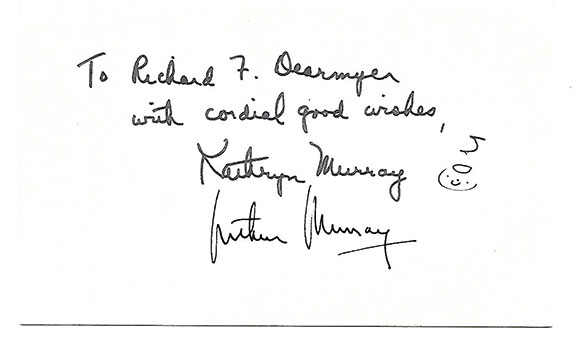 To Richard F. Dearmyer
with cordial good wishes,
Kathryn Murray
Arthur Murray